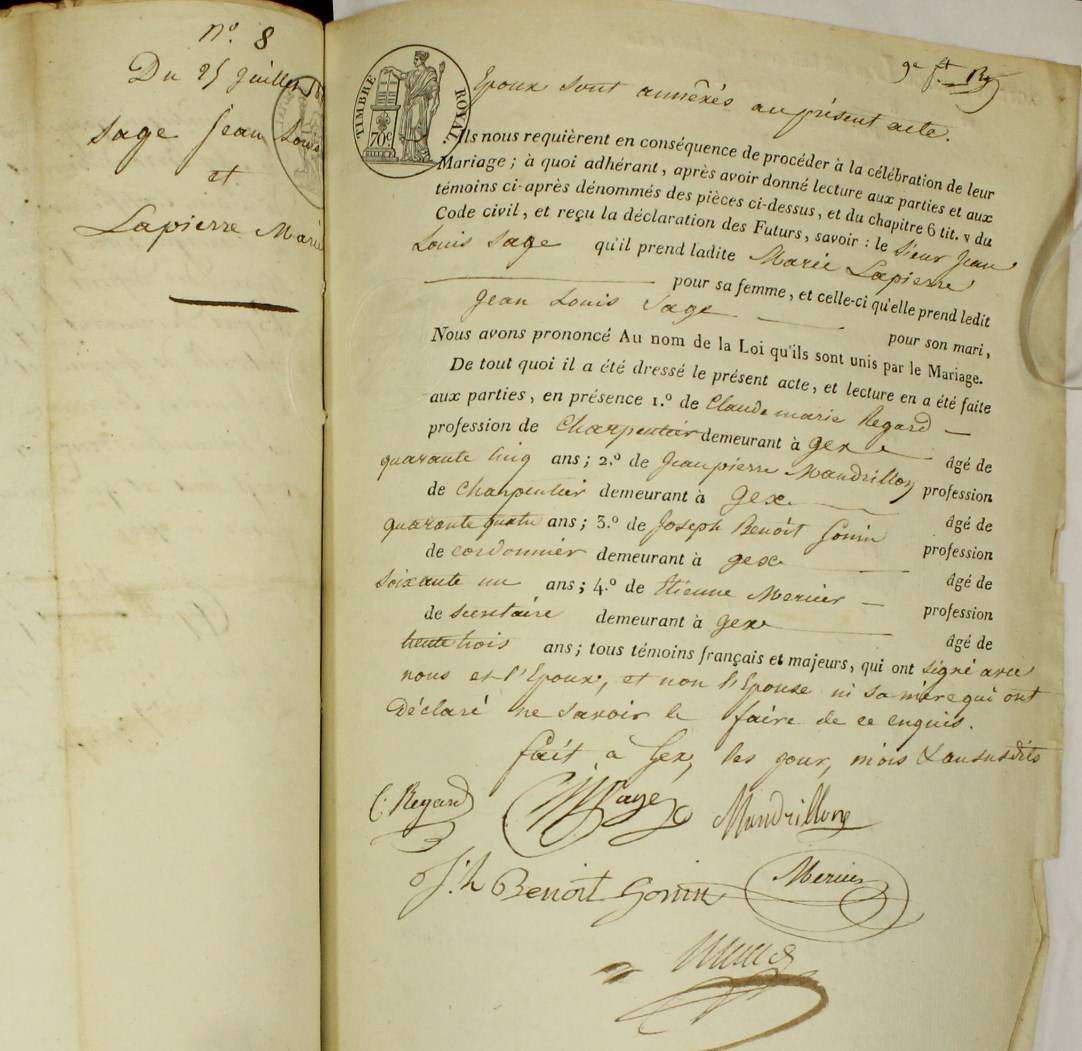 n.º 8
Du 25 juillet
Sage Jean Louis
et
Lapierre Marie
9e f.t
TIMBRE ROYAL.
70 c
Epoux sont annéxés au présent acte.
Ils nous requièrent en conséquence de procéder à la célébration de leur
Mariage; à quoi adhérant, après avoir donné lecture aux parties et aux
témoins ci-après dénommés des pièces ci-dessus, et du chapitre 6 tit. v du
Code civil, et reçu la déclaration des Futurs, savoir: le Sieur Jean
Louis Sage qu'il prend ladite Marie Lapierre
pour sa femme, et celle-ci qu'elle prend ledit
Jean Louis Sage pour son mari,
Nous avons prononcé Au nom de la Loi qu'ils sont unis par le Mariage.
De tout quoi il a été dressé le présent acte, et lecture en a été faite
aux parties, en présence 1.º de Claude marie Regard
profession de Charpentier demeurant à Gex âgé de
quarante cinq ans; 2.º de Jeanpierre Mandrillon profession
de Charpentier demeurant à Gex âgé de
quarante quatre ans; 3.º de Joseph Benoit Gonin profession
de cordonnier demeurant à Gex âgé de
soixante un ans; 4.º de Etienne Mercier profession
de secrétaire demeurant à Gex âgé de
trente trois ans; tous témoins français et majeurs, qui ont signé avec
nous et l'Epoux, et non l'Epouse ni sa mère qui ont
Déclaré ne savoir le faire de ce enquis.
fait à Gex, les jour, mois & an susdits
C. Regard Sage Mandrillon
J.h Benoit Gonin Mercier